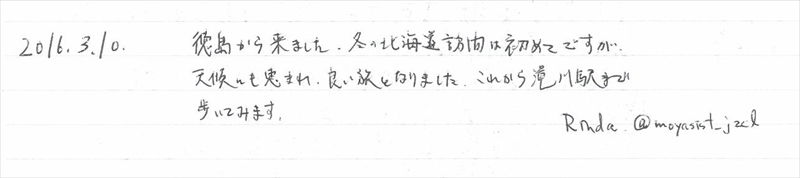 2016.3.10. 徳島から来ました。冬の北海道訪問は初めてですが、
天候にも恵まれ、良い旅となりました。これから滝川駅まで
歩いてみます。
Rmda. @moyasist_jzcl